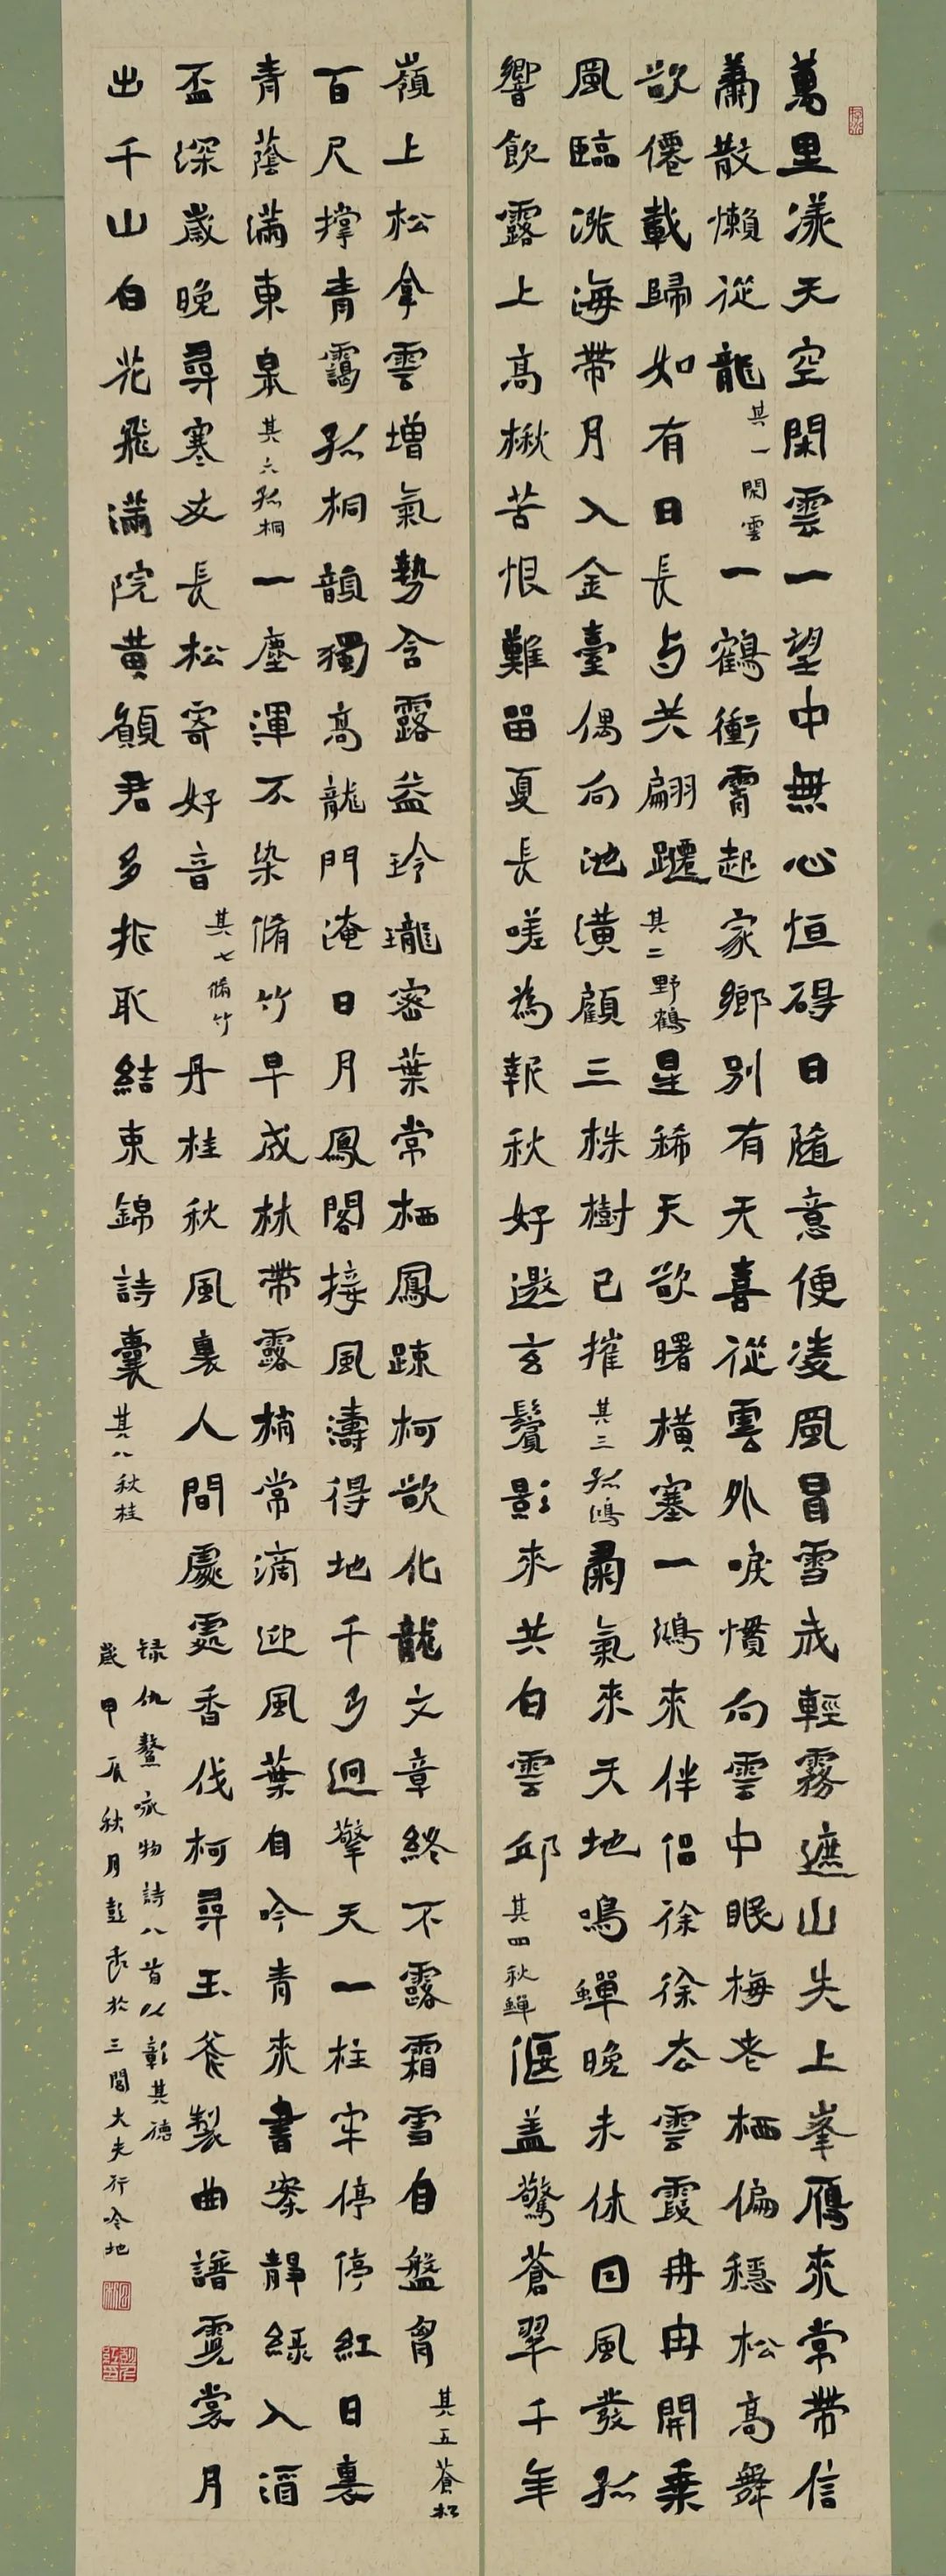 萬里漾天空閑雲一望中無心恒碍日隨意便凌風冒雪成輕霧遮山失上峯雁來常帶信
蕭散懶從龍其一閑雲一鶴衝霄起家鄉別有天喜從雲外唳慣向雲中眠梅老栖偏穩松高舞
欲僊載歸如有日長与共翩躚其二野鶴星稀天欲曙橫塞一鴻來伴侣徐徐去雲霞冉冉開乘
風臨漲海帶月入金臺偶向池潢顧三株樹已摧其三孤鴻肅氣來天地鳴蟬晚未休回風發孤
響飲露上高楸苦恨難留夏長嗟為報秋好邀玄鬢影來共白雲邱其四秋蟬偃盖驚蒼翠千年
嶺上松拿雲增氣勢含露益玲瓏密葉常栖鳳疎柯欲化龍文章終不露霜雪自盤胷其五蒼松
百尺撑青靄孤桐韻獨高龍門淹日月鳳閣接風濤得地千尋迥擎天一柱牢停停紅日裏
青蔭滿東皐其六孤桐一塵渾不染脩竹早成林帶露梢常滴迎風葉自吟青來書案靜綠入酒
盃深歲晚尋寒友長松寄好音其七脩竹丹桂秋風裏人間處處香伐柯尋玉斧製曲譜霓裳月
出千山白花飛滿院黄願君多折取結束錦詩囊其八秋桂
録仇鰲咏物詩八首以彰其德
歲甲辰秋月彭 於三閭大夫行吟地